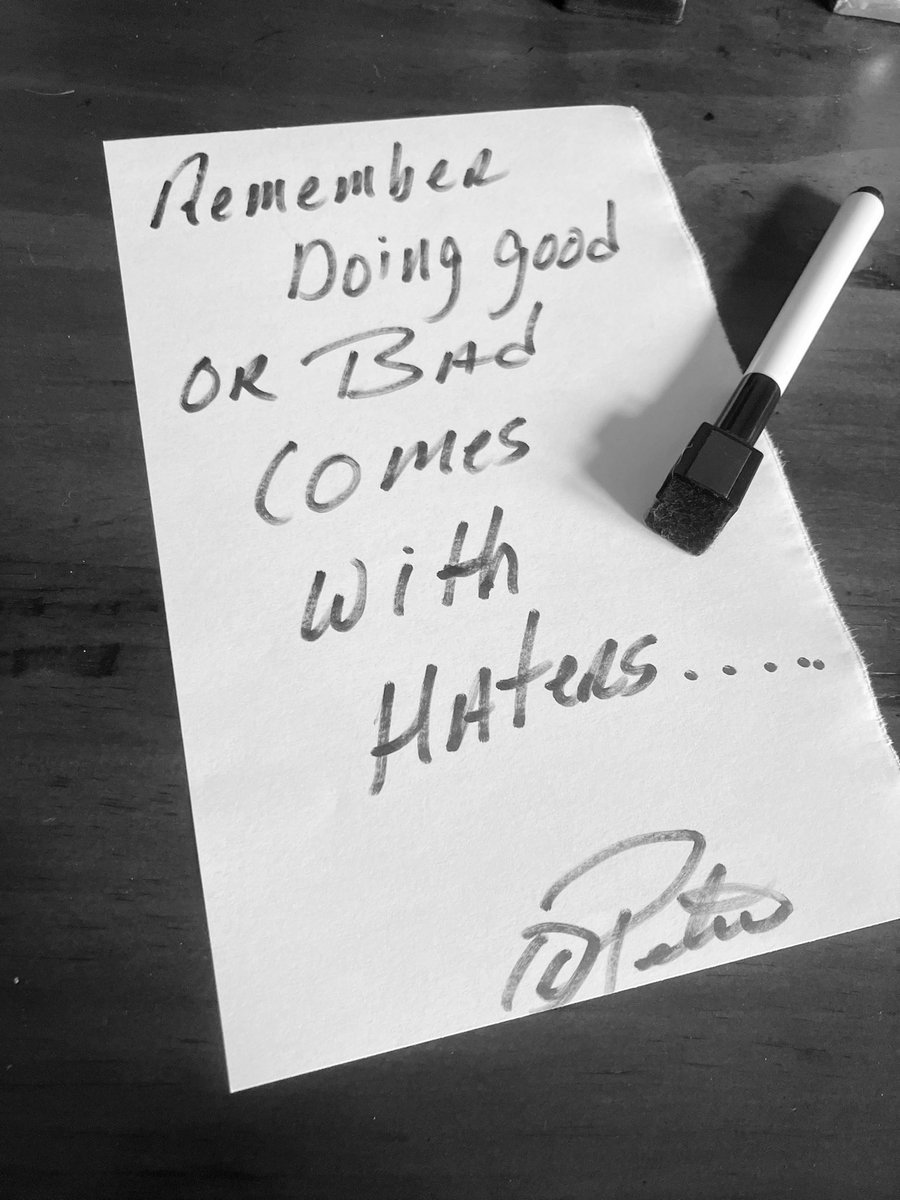 Remember
Doing good
OR BAd
Comes
With
HAteRs......